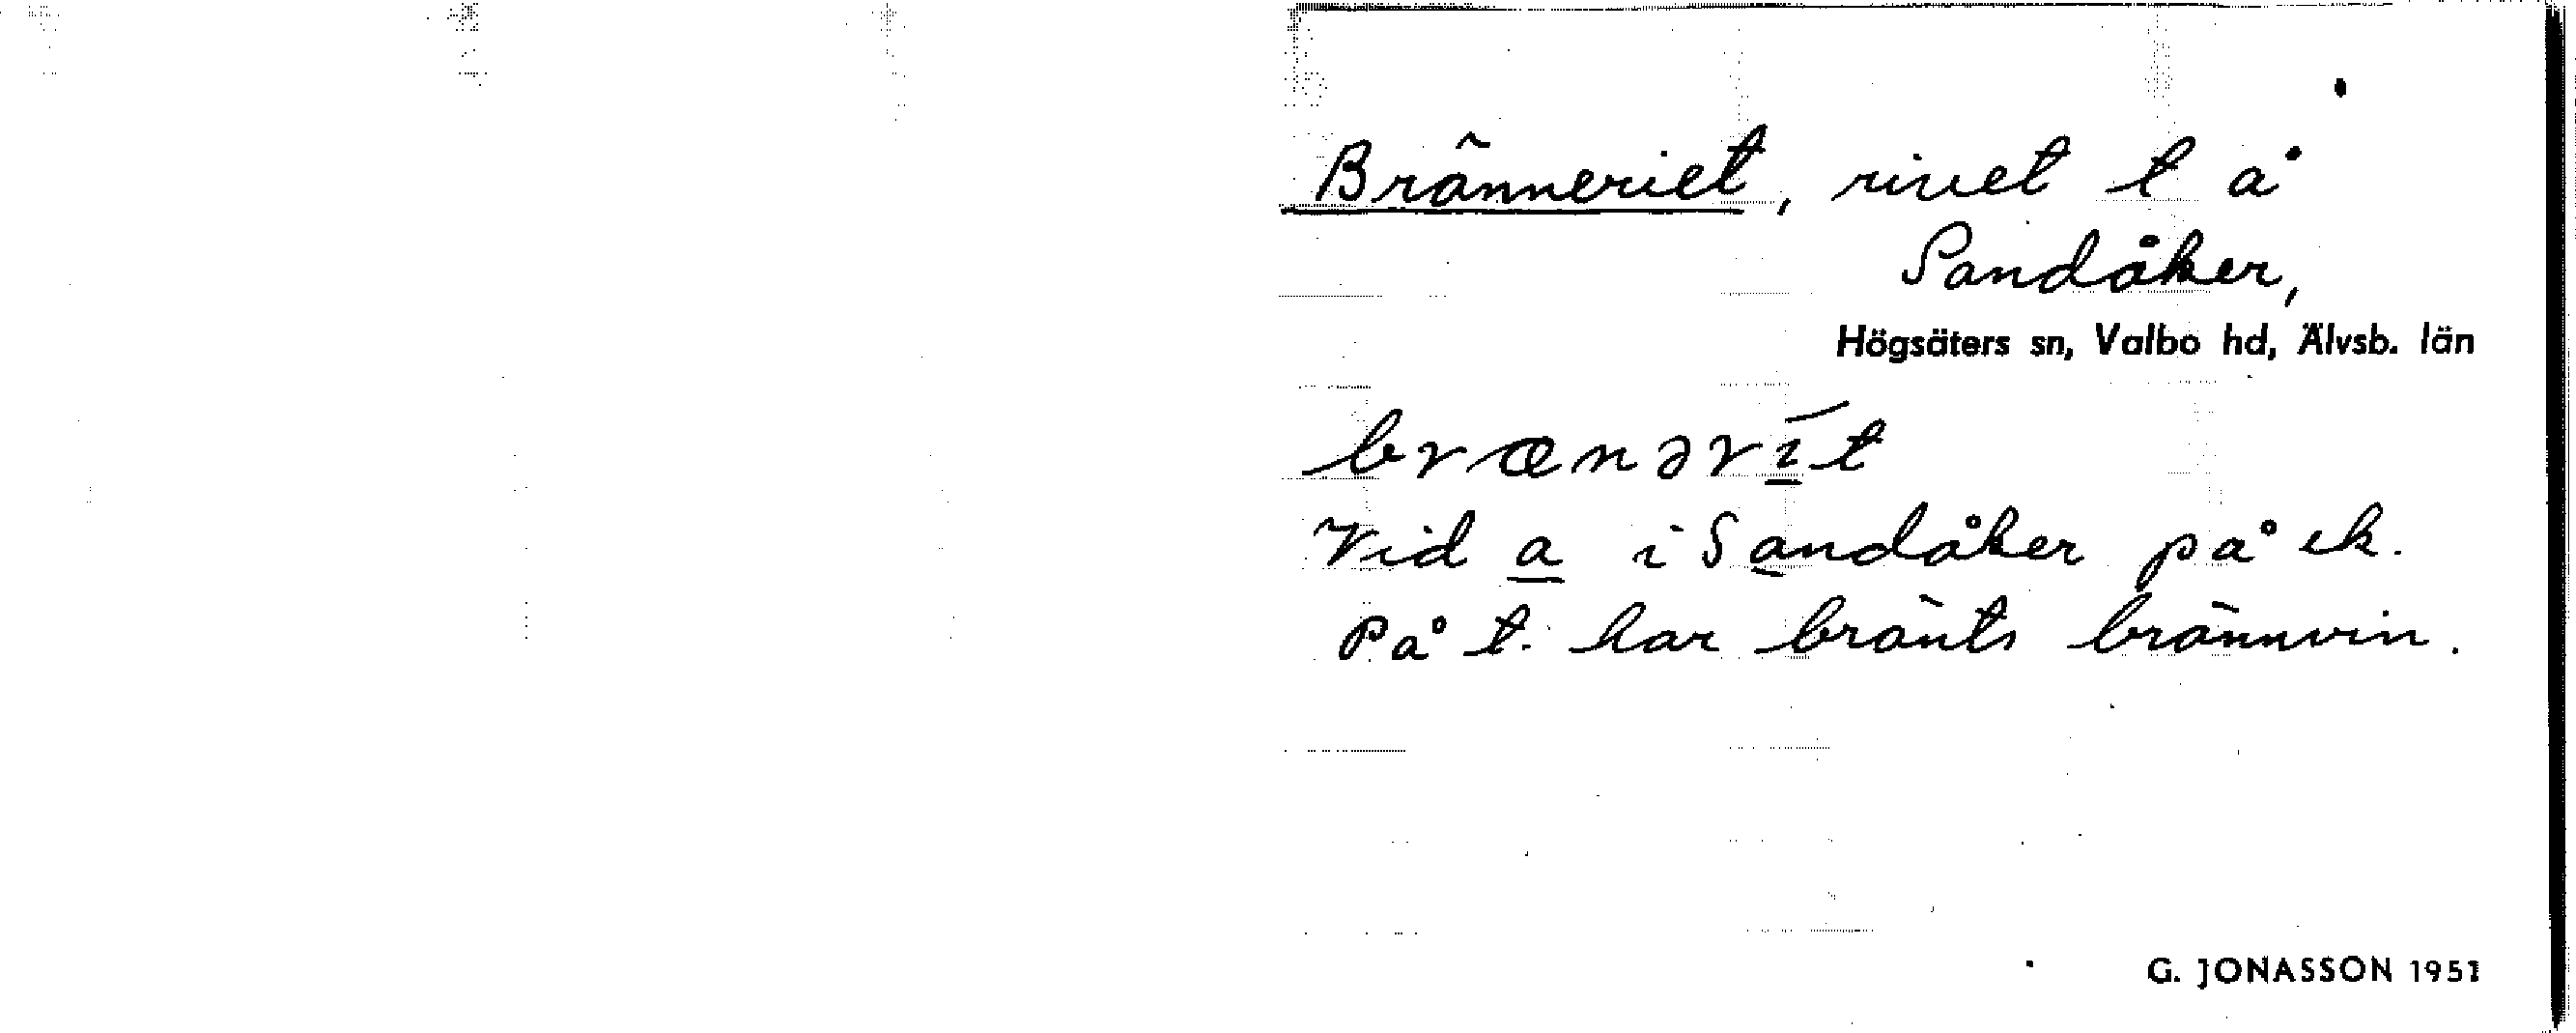 Bränneriet, rivet t å
Sandåker,
Högsäters sn, Valbo hd, Älvsb. län
brænərít
Vid a i Sandåker på ek.
På t. har bränts brännvin.
G. JONASSON 1951